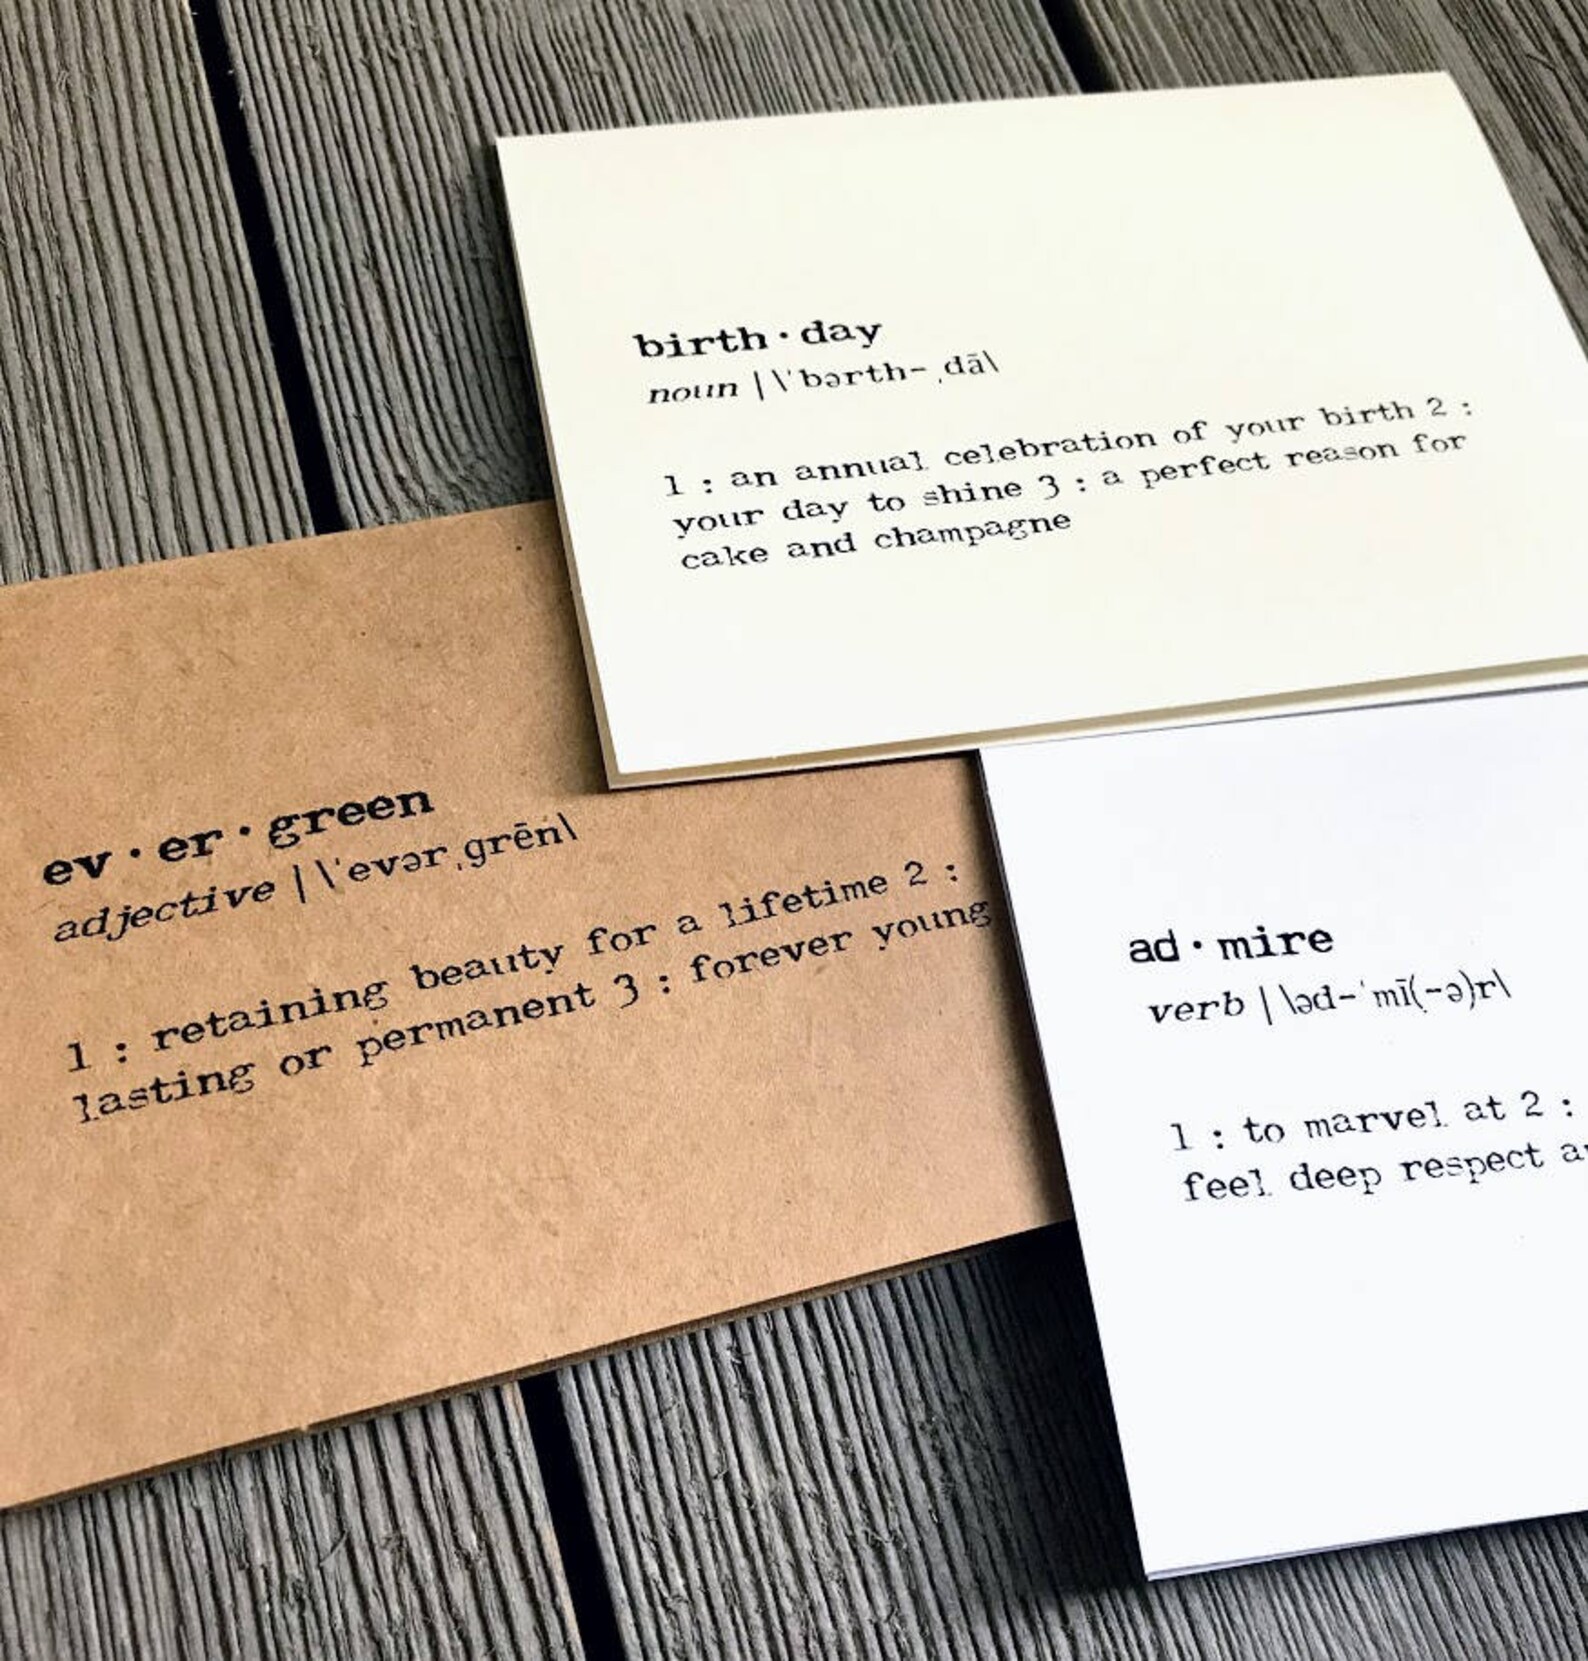 birth·day
noun |\ˈbərth-ˌdā\
1 : an annual celebration of your birth 2 :
your day to shine 3 : a perfect reason for
cake and champagne
ev·er·green
adjective |\ˈevərˌgrēn\
1 : retaining beauty for a lifetime 2 :
lasting or permanent 3 : forever young
ad·mire
verb |\əd-ˈmī(-ə)r\
1 : to marvel at 2 :
feel deep respect